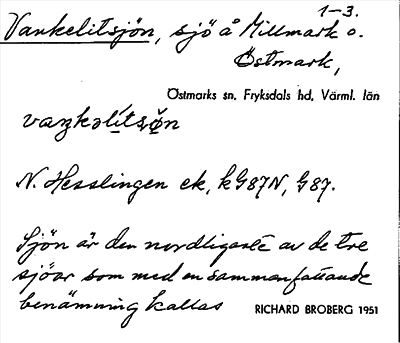 1-3.
Vankelitsjön, sjö å Millmark o.
Östmark,
Östmarks sn. Fryksdals hd. Värml. län
N. Hesslingen ek, kG87N, G87.
Sjön är den nordligaste av de tre
sjöar som med en sammanfattande
benämning kallas
RICHARD BROBERG 1951